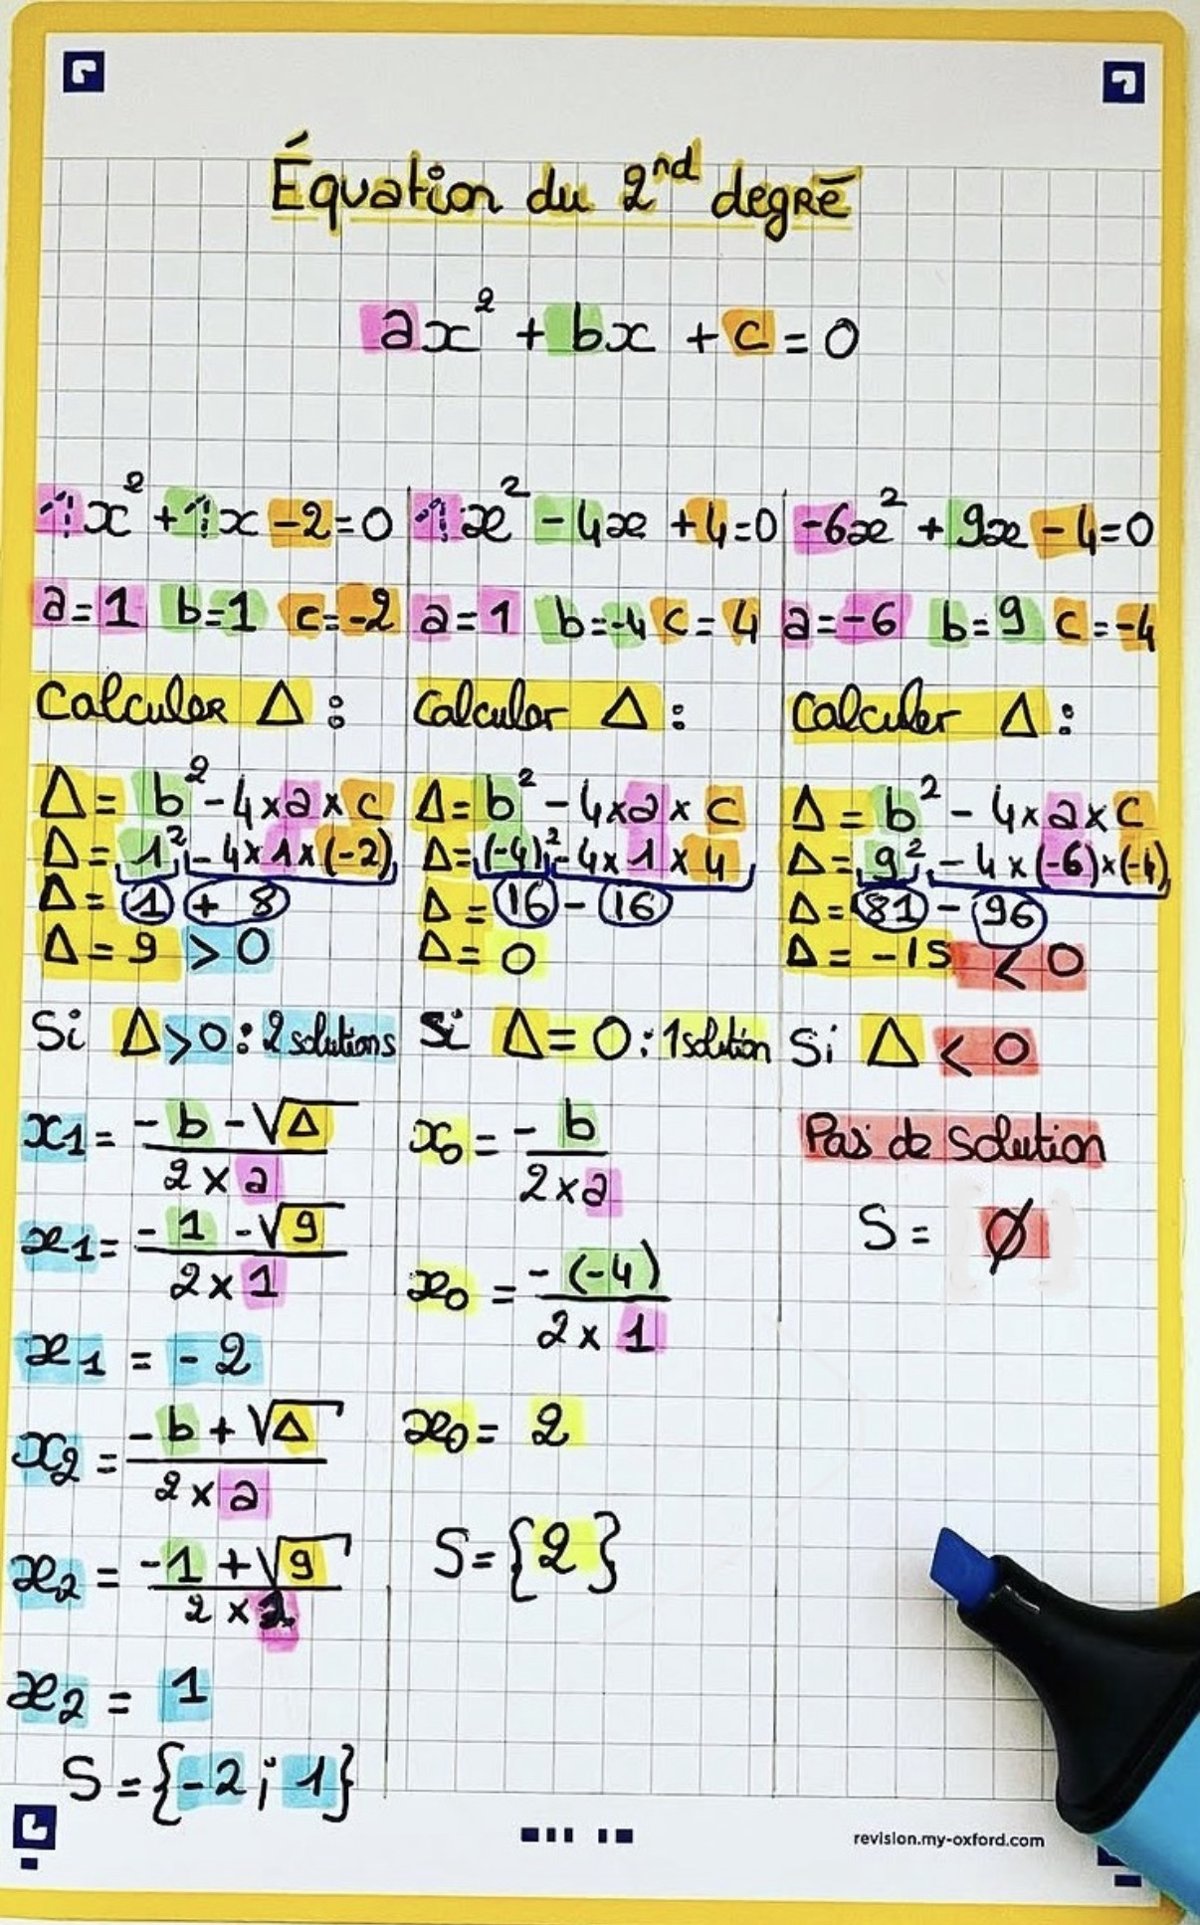 Équation du 2nd degré
ax² + bx + c = 0
1x² + 1x - 2 = 0
a = 1 b = 1 c = -2
Calculer Δ :
Δ = b² - 4 × a × c
Δ = 1² - 4 × 1 × (-2)
Δ = 1 + 8
Δ = 9 > 0
Si Δ > 0 : 2 solutions
x1 = (-b - √Δ) / (2 × a)
x1 = (-1 - √9) / (2 × 1)
x1 = -2
x2 = (-b + √Δ) / (2 × a)
x2 = (-1 + √9) / (2 × 1)
x2 = 1
S = {-2 ; 1}
1x² - 4x + 4 = 0
a = 1 b = -4 c = 4
Calculer Δ :
Δ = b² - 4 × a × c
Δ = (-4)² - 4 × 1 × 4
Δ = 16 - 16
Δ = 0
Si Δ = 0 : 1 solution
x0 = -b / (2 × a)
x0 = -(-4) / (2 × 1)
x0 = 2
S = {2}
-6x² + 9x - 4 = 0
a = -6 b = 9 c = -4
Calculer Δ :
Δ = b² - 4 × a × c
Δ = 9² - 4 × (-6) × (-4)
Δ = 81 - 96
Δ = -15 < 0
Si Δ < 0
Pas de solution
S = ∅
revision.my-oxford.com